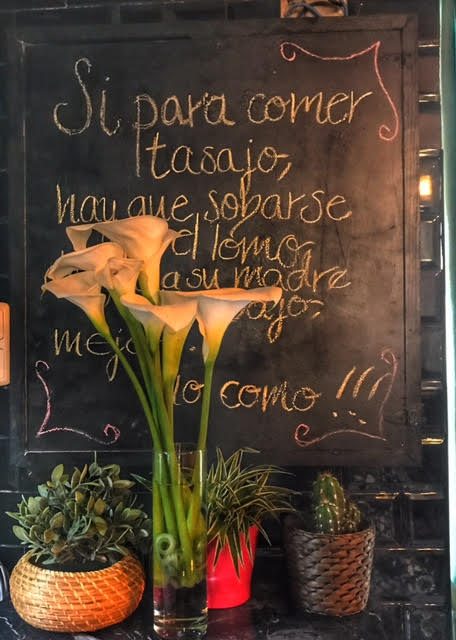 Si para comer
tasajo,
hay que sobarse
el lomo,
a su madre
mejor
lo como !!!